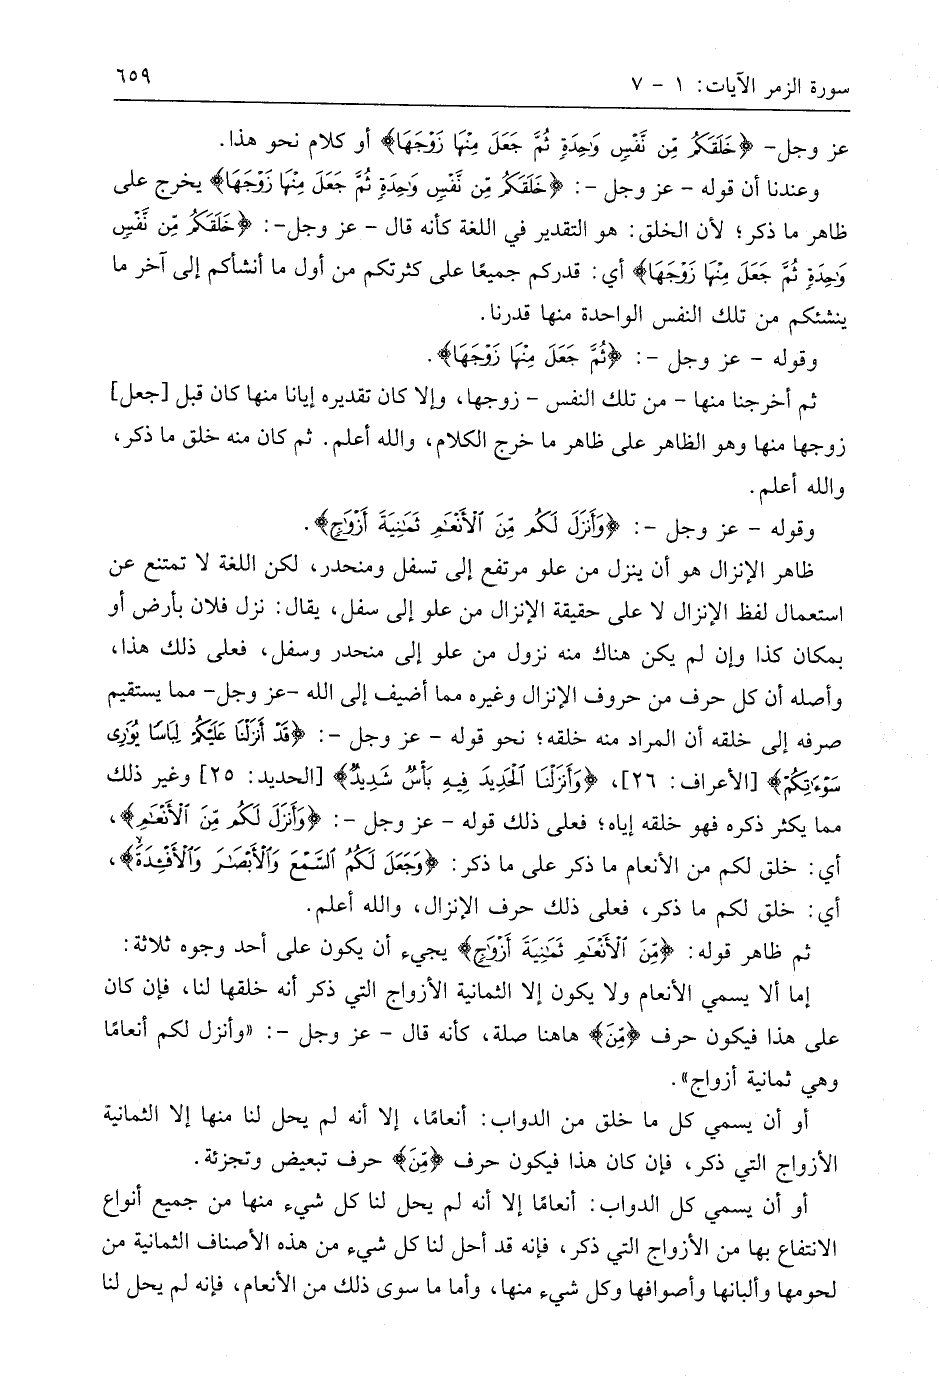 سورة الزمر الآيات: ١ - ٧
٦٥٩
عز وجل- ﴿خَلَقَكُم مِّن نَّفْسٍ وَٰحِدَةٍ ثُمَّ جَعَلَ مِنْهَا زَوْجَهَا﴾ أو كلام نحو هذا.
وعندنا أن قوله - عز وجل -: ﴿خَلَقَكُم مِّن نَّفْسٍ وَٰحِدَةٍ ثُمَّ جَعَلَ مِنْهَا زَوْجَهَا﴾ يخرج على
ظاهر ما ذكر؛ لأن الخلق: هو التقدير في اللغة كأنه قال - عز وجل-: ﴿خَلَقَكُم مِّن نَّفْسٍ
وَٰحِدَةٍ ثُمَّ جَعَلَ مِنْهَا زَوْجَهَا﴾ أي: قدركم جميعًا على كثرتكم من أول ما أنشأكم إلى آخر ما
ينشئكم من تلك النفس الواحدة منها قدرنا.
وقوله - عز وجل -: ﴿ثُمَّ جَعَلَ مِنْهَا زَوْجَهَا﴾.
ثم أخرجنا منها - من تلك النفس - زوجها، وإلا كان تقديره إيانا منها كان قبل [جعل]
زوجها منها وهو الظاهر على ظاهر ما خرج الكلام، والله أعلم. ثم كان منه خلق ما ذكر،
والله أعلم.
وقوله - عز وجل -: ﴿وَأَنزَلَ لَكُم مِّنَ ٱلْأَنْعَٰمِ ثَمَٰنِيَةَ أَزْوَٰجٍ﴾.
ظاهر الإنزال هو أن ينزل من علو مرتفع إلى تسفل ومنحدر، لكن اللغة لا تمتنع عن
استعمال لفظ الإنزال لا على حقيقة الإنزال من علو إلى سفل، يقال: نزل فلان بأرض أو
بمكان كذا وإن لم يكن هناك منه نزول من علو إلى منحدر وسفل، فعلى ذلك هذا،
وأصله أن كل حرف من حروف الإنزال وغيره مما أضيف إلى الله -عز وجل- مما يستقيم
صرفه إلى خلقه أن المراد منه خلقه؛ نحو قوله - عز وجل -: ﴿قَدْ أَنزَلْنَا عَلَيْكُمْ لِبَاسًا يُوَٰرِى
سَوْءَٰتِكُمْ﴾ [الأعراف: ٢٦]، ﴿وَأَنزَلْنَا ٱلْحَدِيدَ فِيهِ بَأْسٌ شَدِيدٌ﴾ [الحديد: ٢٥] وغير ذلك
مما يكثر ذكره فهو خلقه إياه؛ فعلى ذلك قوله - عز وجل -: ﴿وَأَنزَلَ لَكُم مِّنَ ٱلْأَنْعَٰمِ﴾،
أي: خلق لكم من الأنعام ما ذكر على ما ذكر: ﴿وَجَعَلَ لَكُمُ ٱلسَّمْعَ وَٱلْأَبْصَٰرَ وَٱلْأَفْـِٔدَةَ﴾،
أي: خلق لكم ما ذكر، فعلى ذلك حرف الإنزال، والله أعلم.
ثم ظاهر قوله: ﴿مِّنَ ٱلْأَنْعَٰمِ ثَمَٰنِيَةَ أَزْوَٰجٍ﴾ يجيء أن يكون على أحد وجوه ثلاثة:
إما ألا يسمي الأنعام ولا يكون إلا الثمانية الأزواج التي ذكر أنه خلقها لنا، فإن كان
على هذا فيكون حرف ﴿مِّنَ﴾ هاهنا صلة، كأنه قال - عز وجل -: «وأنزل لكم أنعامًا
وهي ثمانية أزواج».
أو أن يسمي كل ما خلق من الدواب: أنعامًا، إلا أنه لم يحل لنا منها إلا الثمانية
الأزواج التي ذكر، فإن كان هذا فيكون حرف ﴿مِّنَ﴾ حرف تبعيض وتجزئة.
أو أن يسمي كل الدواب: أنعامًا إلا أنه لم يحل لنا كل شيء منها من جميع أنواع
الانتفاع بها من الأزواج التي ذكر، فإنه قد أحل لنا كل شيء من هذه الأصناف الثمانية من
لحومها وألبانها وأصوافها وكل شيء منها، وأما ما سوى ذلك من الأنعام، فإنه لم يحل لنا